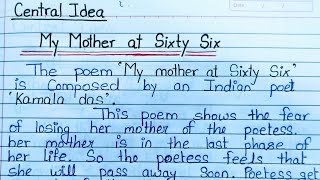 Central Idea
My Mother at Sixty Six
The poem "My mother at Sixty Six"
is Composed by an Indian poet
'Kamala das'.
This poem shows the fear
of losing her mother of the poetess.
her mother is in the last phase of
her life. So the poetess feels that
she will pass away Soon. Poetess get